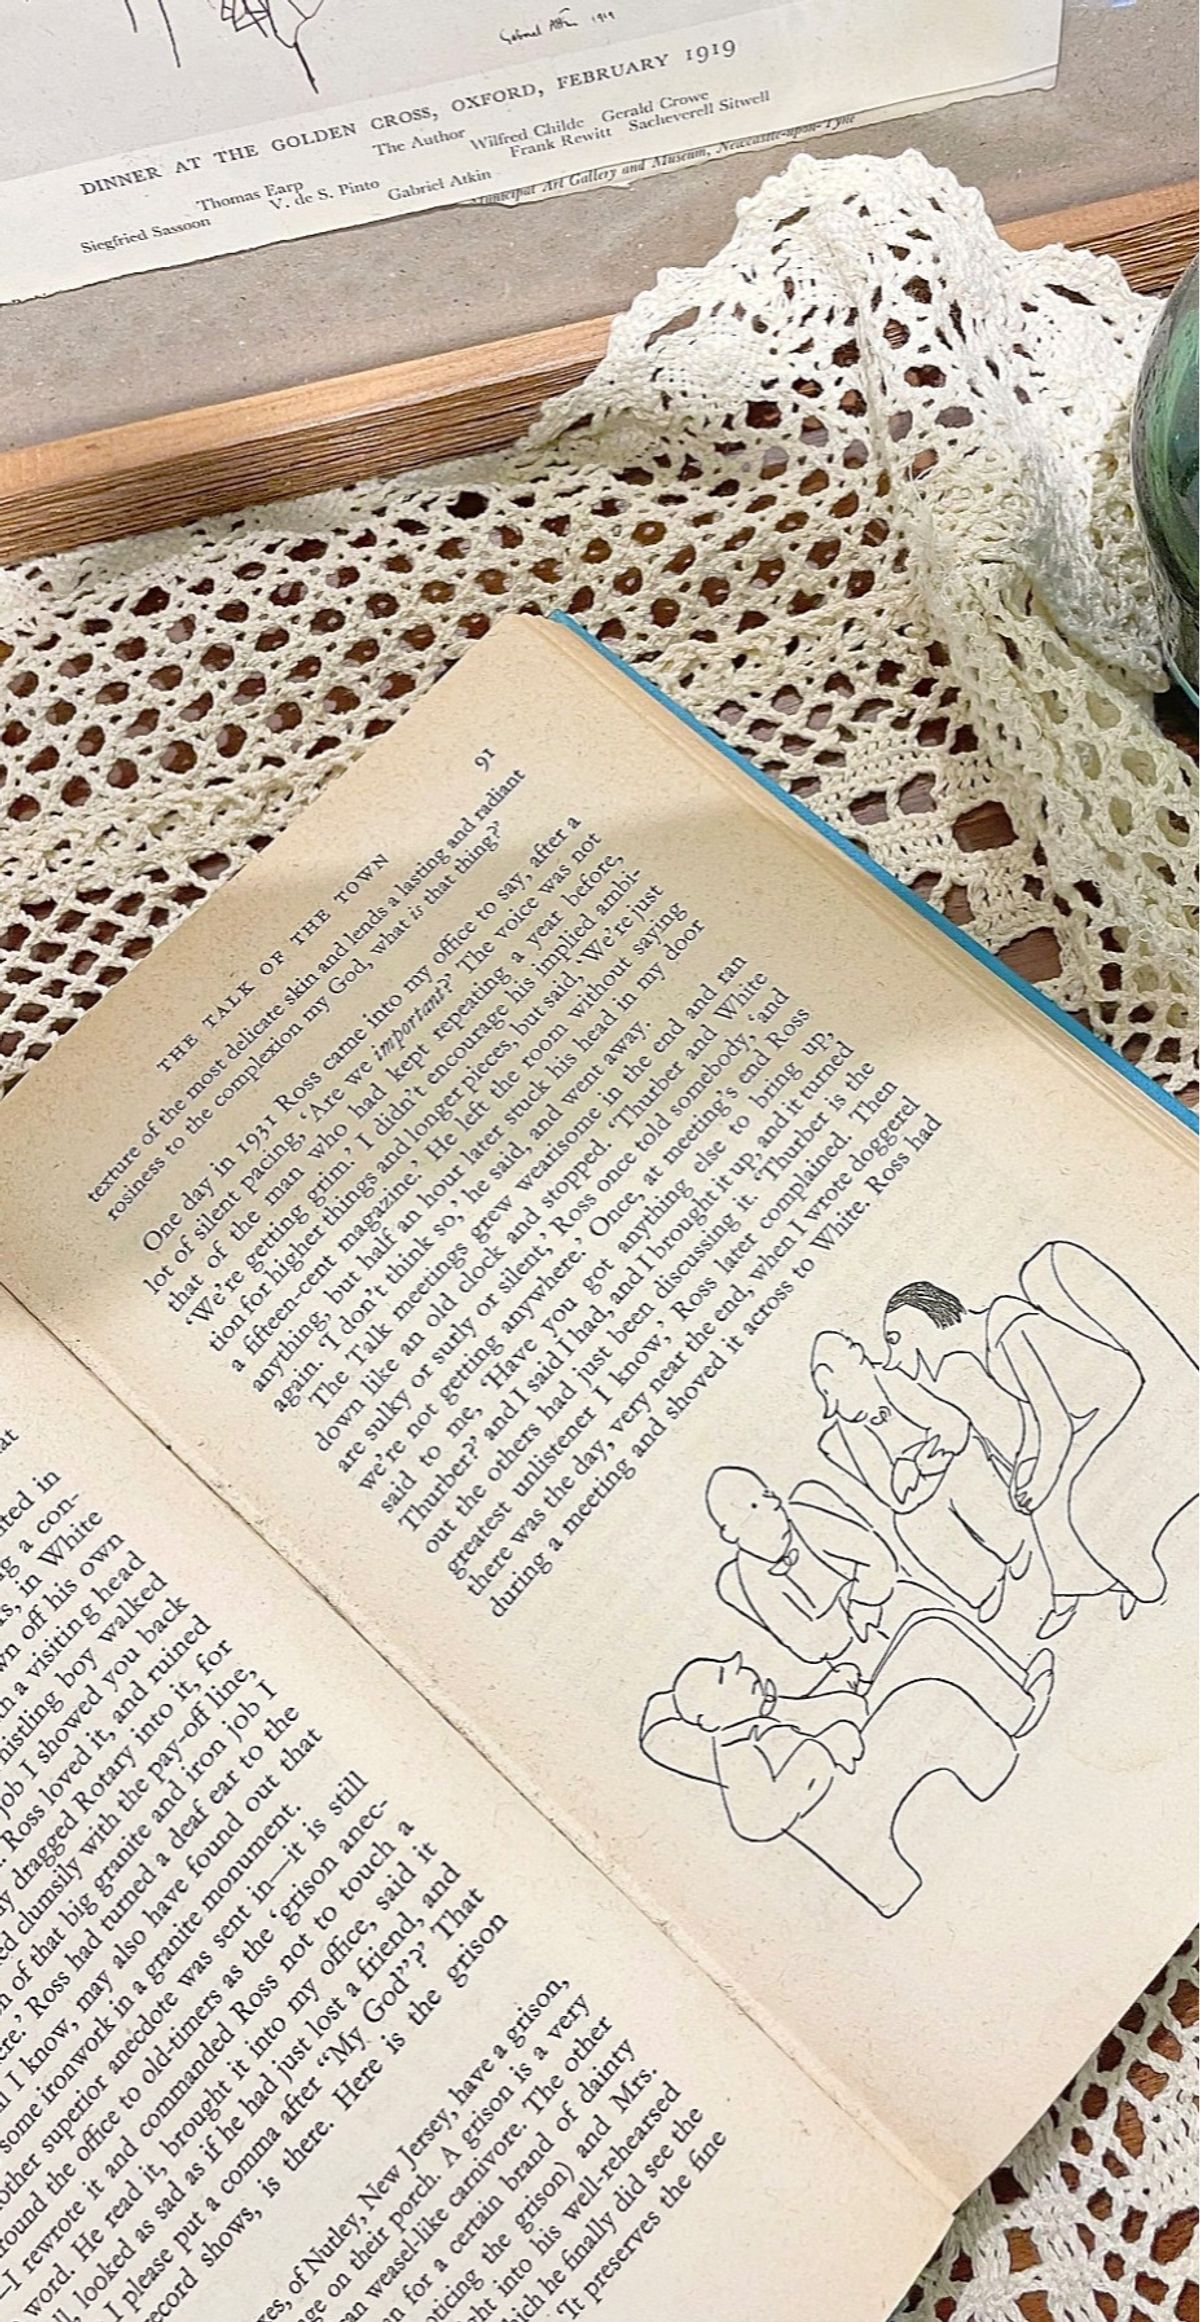 Gabriel Atkin 1919
DINNER AT THE GOLDEN CROSS, OXFORD, FEBRUARY 1919
The Author Wilfred Childe Gerald Crowe
Thomas Earp Frank Rewitt Sacheverell Sitwell
V. de S. Pinto
Siegfried Sassoon Gabriel Atkin
Municipal Art Gallery and Museum, Newcastle-upon-Tyne
at
ited in
g a con-
in White
off his own
a visiting head
whistling boy walked
job I showed you back
Ross loved it, and ruined
dragged Rotary into it, for
clumsily with the pay-off line,
of that big granite and iron job I
Ross had turned a deaf ear to the
I know, may also have found out that
some ironwork in a granite monument.
other superior anecdote was sent in—it is still
around the office to old-timers as the ‘grison anec-
—I rewrote it and commanded Ross not to touch a
word. He read it, brought it into my office, said it
looked as sad as if he had just lost a friend, and
I please put a comma after “My God”?’ That
record shows, is there. Here is the grison
of Nutley, New Jersey, have a grison,
on their porch. A grison is a very
weasel-like carnivore. The other
for a certain brand of dainty
the grison) and Mrs.
into his well-rehearsed
which he finally did see the
‘It preserves the fine
THE TALK OF THE TOWN 91
texture of the most delicate skin and lends a lasting and radiant
rosiness to the complexion my God, what is that thing?’
One day in 1931 Ross came into my office to say, after a
lot of silent pacing, ‘Are we important?’ The voice was not
that of the man who had kept repeating a year before,
‘We’re getting grim.’ I didn’t encourage his implied ambi-
tion for higher things and longer pieces, but said, ‘We’re just
a fifteen-cent magazine.’ He left the room without saying
anything, but half an hour later stuck his head in my door
again. ‘I don’t think so,’ he said, and went away.
The Talk meetings grew wearisome in the end and ran
down like an old clock and stopped. ‘Thurber and White
are sulky or surly or silent,’ Ross once told somebody, ‘and
we’re not getting anywhere.’ Once, at meeting’s end Ross
said to me, ‘Have you got anything else to bring up,
Thurber?’ and I said I had, and I brought it up, and it turned
out the others had just been discussing it. ‘Thurber is the
greatest unlistener I know,’ Ross later complained. Then
there was the day, very near the end, when I wrote doggerel
during a meeting and shoved it across to White. Ross had